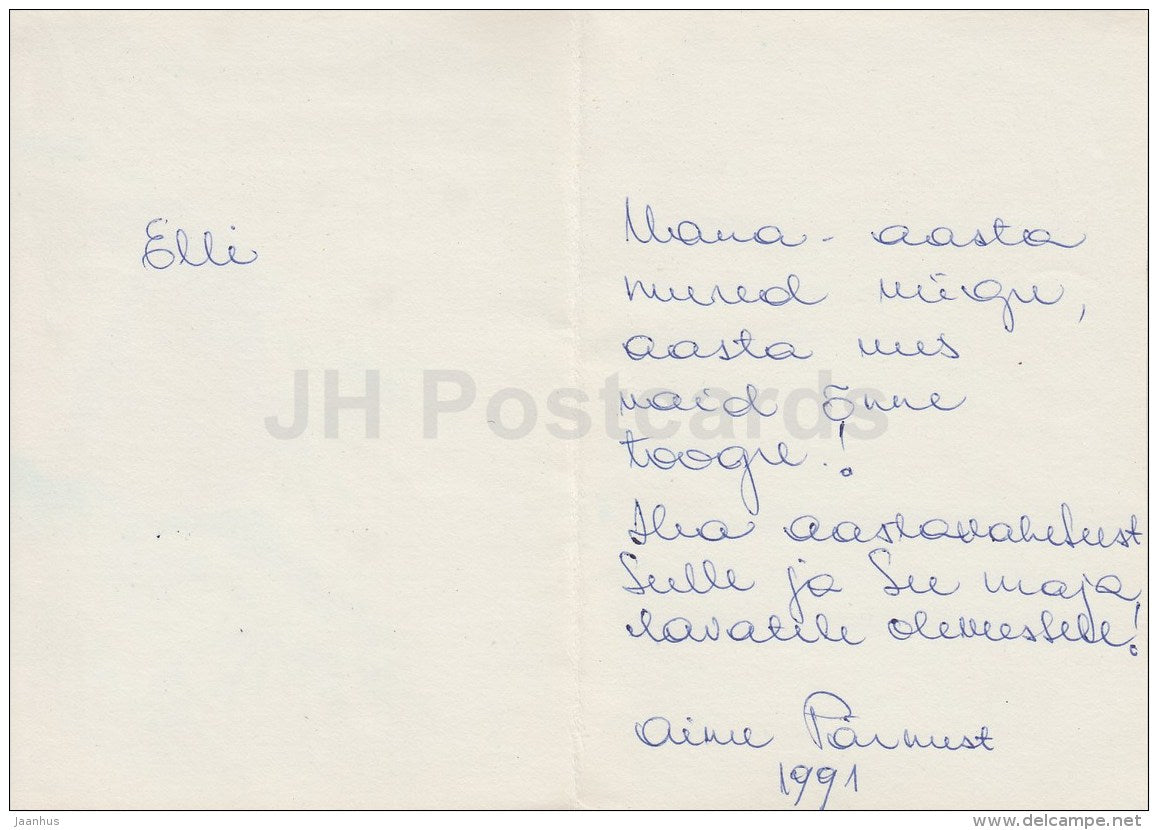 Elli
Vana-aasta
mured viigu,
aasta uus
vaid õnne
toogu!
Ilu aastavahetust
Sulle ja Su maja
elavatile olevustele!
Aime Pärnust
1991
JH Postcards
Jaanhus
www.delcampe.net